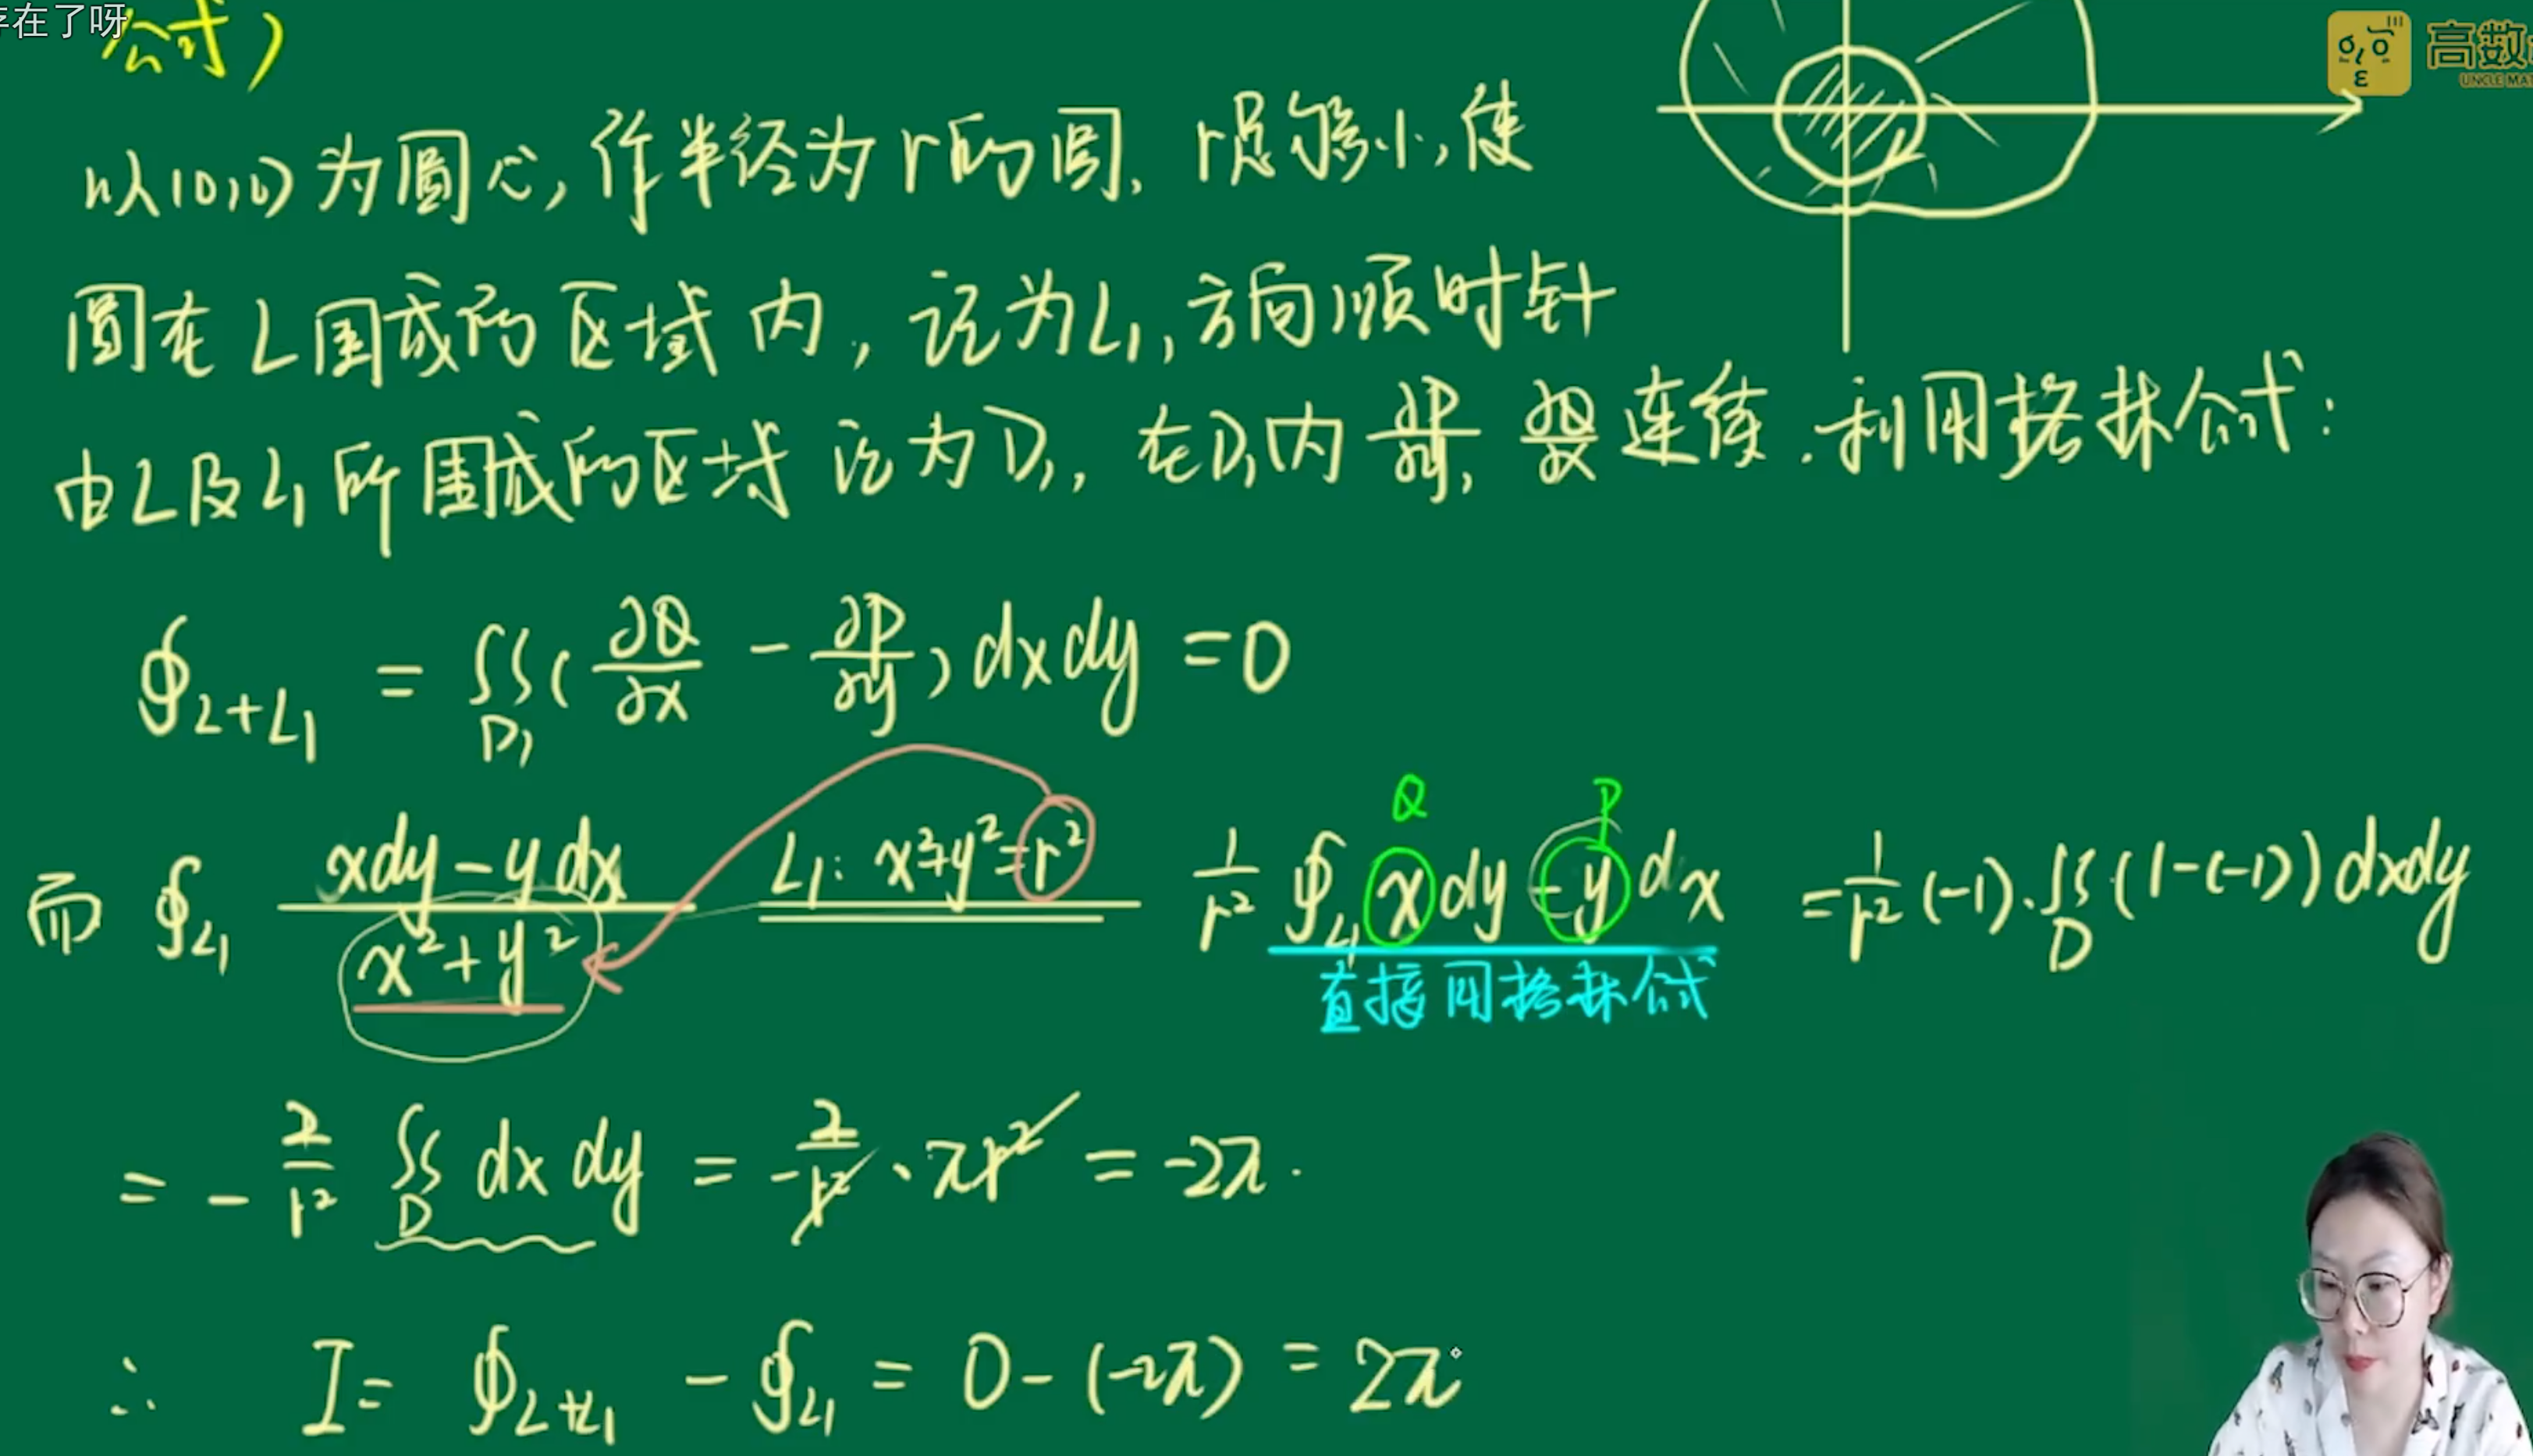 存在了呀
公式)
高数
UNCLE MA
以(0,0)为圆心,作半径为r的圆,r足够小,使
圆在L围成的区域内,记为L₁,方向顺时针
由L及L₁所围成的区域记为D₁,在D₁内 ∂P/∂y, ∂Q/∂x 连续.利用格林公式:
∮_{L+L₁} = ∬_{D₁} (∂Q/∂x - ∂P/∂y) dxdy = 0
Q P
而 ∮_{L₁} (xdy-ydx)/(x²+y²) L₁: x²+y²=r² 1/r² ∮_{L₁} xdy-ydx = 1/r² (-1)·∬_D (1-(-1)) dxdy
直接用格林公式
= - 2/r² ∬_D dxdy = -2/r² · πr² = -2π.
∴ I = ∮_{L+L₁} - ∮_{L₁} = 0-(-2π) = 2π